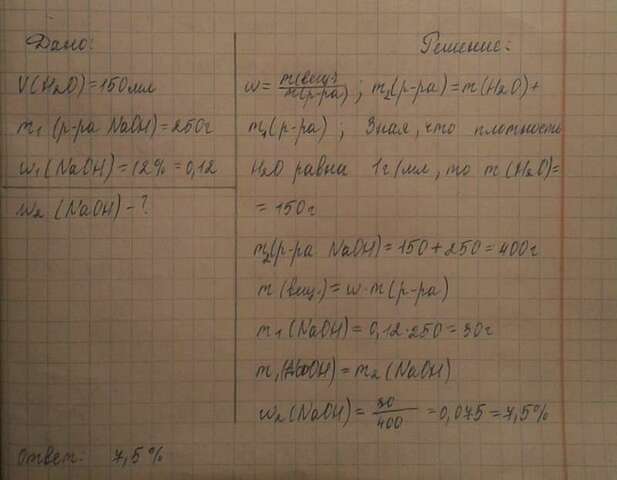 Дано:
V(H2O)=150мл
m1 (р-ра NaOH)=250г
w1 (NaOH)=12%=0,12
w2 (NaOH)-?
Решение:
w= m(вещ.)/m(р-ра) ; m2(р-ра)=m(H2O)+
m1(р-ра) ; Зная, что плотность
H2O равна 1г/мл, то m(H2O)=
=150г
m2(р-ра NaOH)=150+250=400г
m(вещ.)=w·m(р-ра)
m1(NaOH)=0,12·250=30г
m1(NaOH)=m2(NaOH)
w2(NaOH)= 30/400 =0,075=7,5%
Ответ: 7,5%